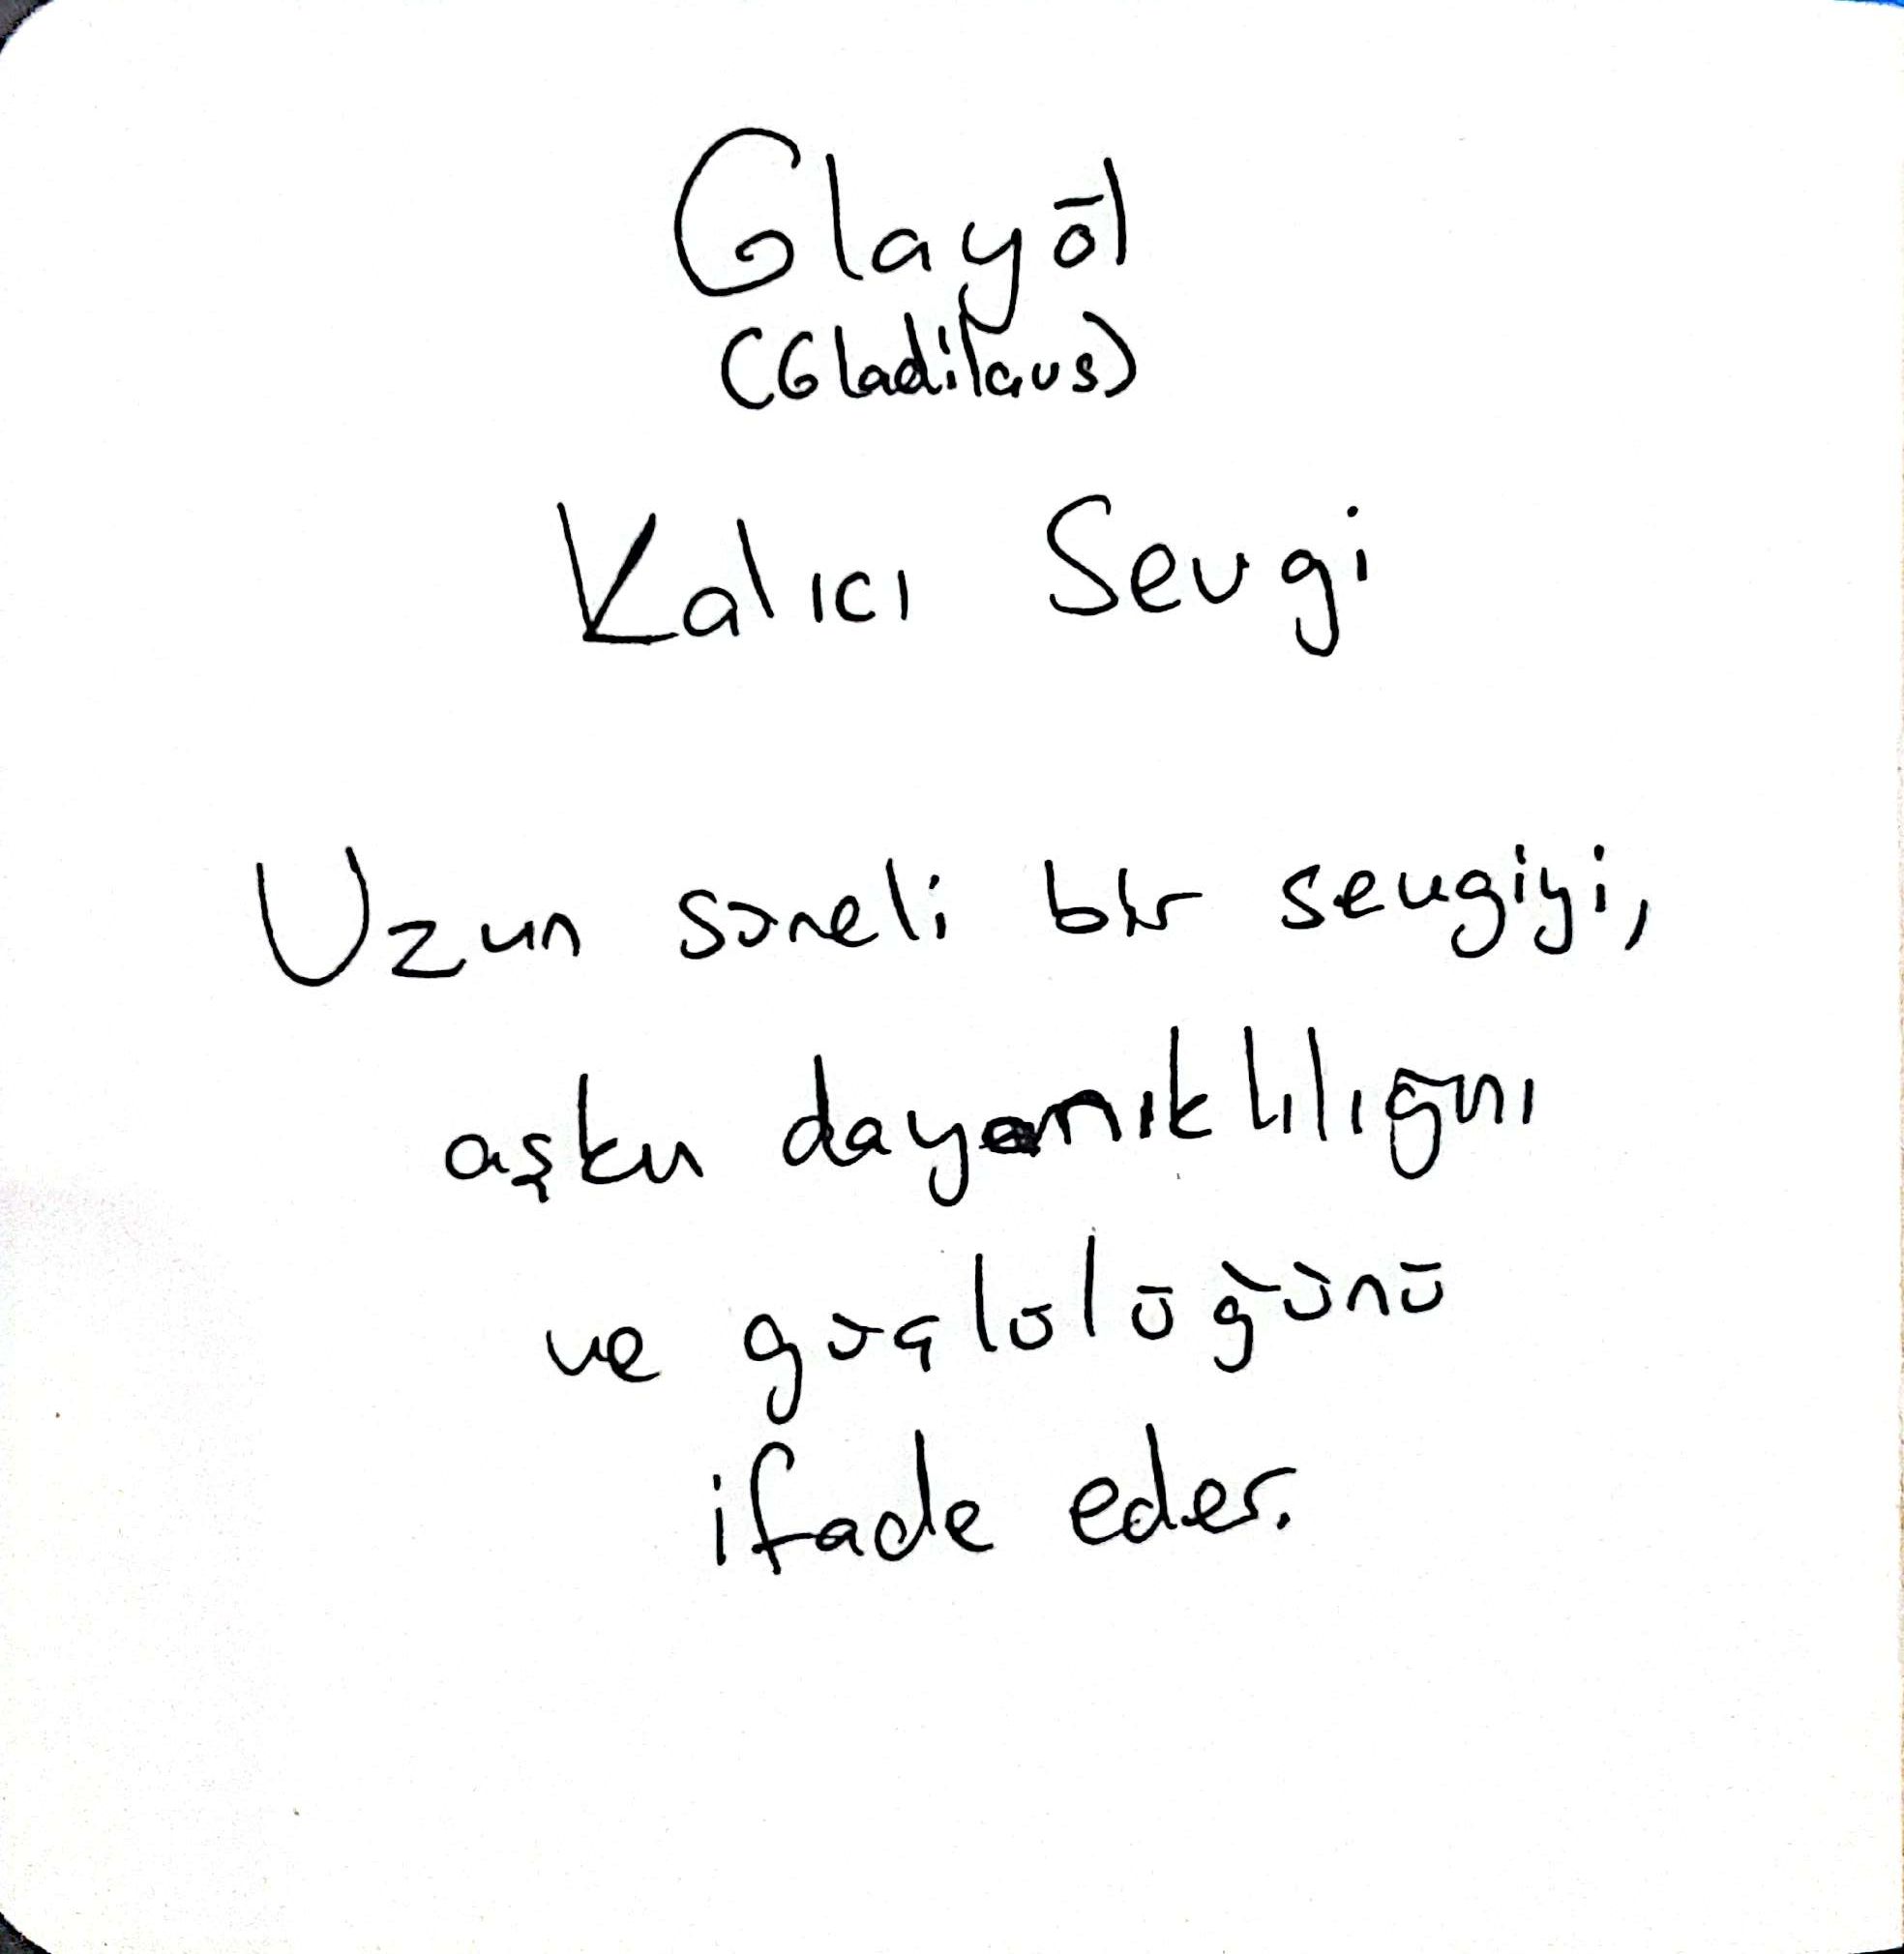 Glayöl
(Gladilaus)
Kalıcı Sevgi
Uzun süreli bir sevgiyi,
aşkın dayanıklılığını
ve güçlülüğünü
ifade eder.